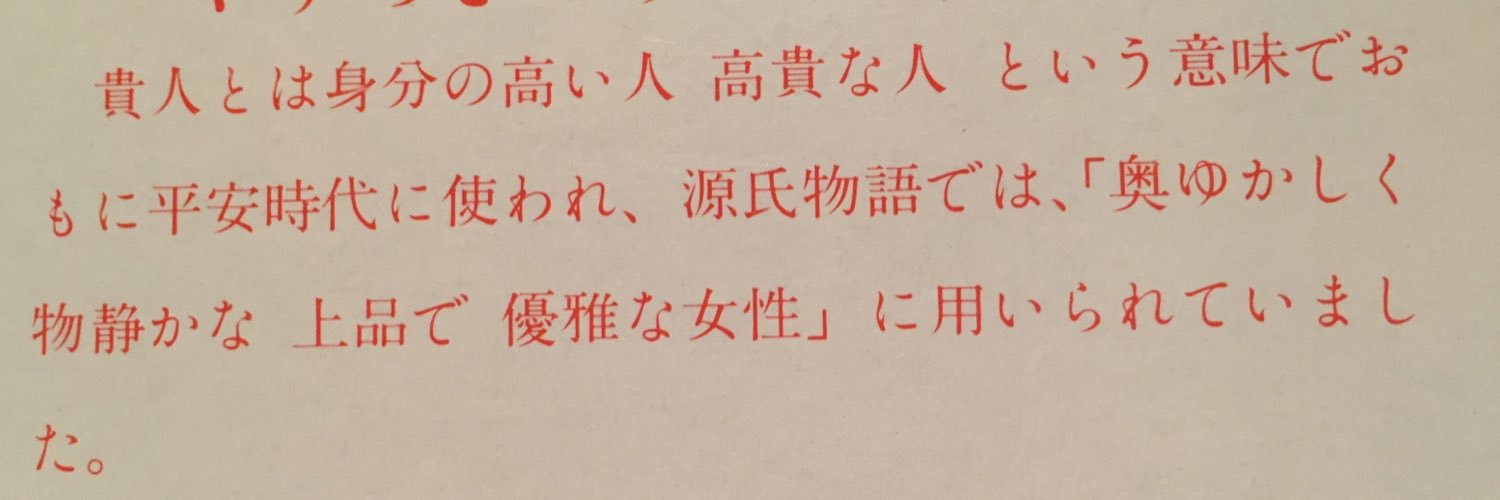 貴人とは身分の高い人 高貴な人 という意味でお
もに平安時代に使われ、源氏物語では、「奥ゆかしく
物静かな 上品で 優雅な女性」に用いられていまし
た。